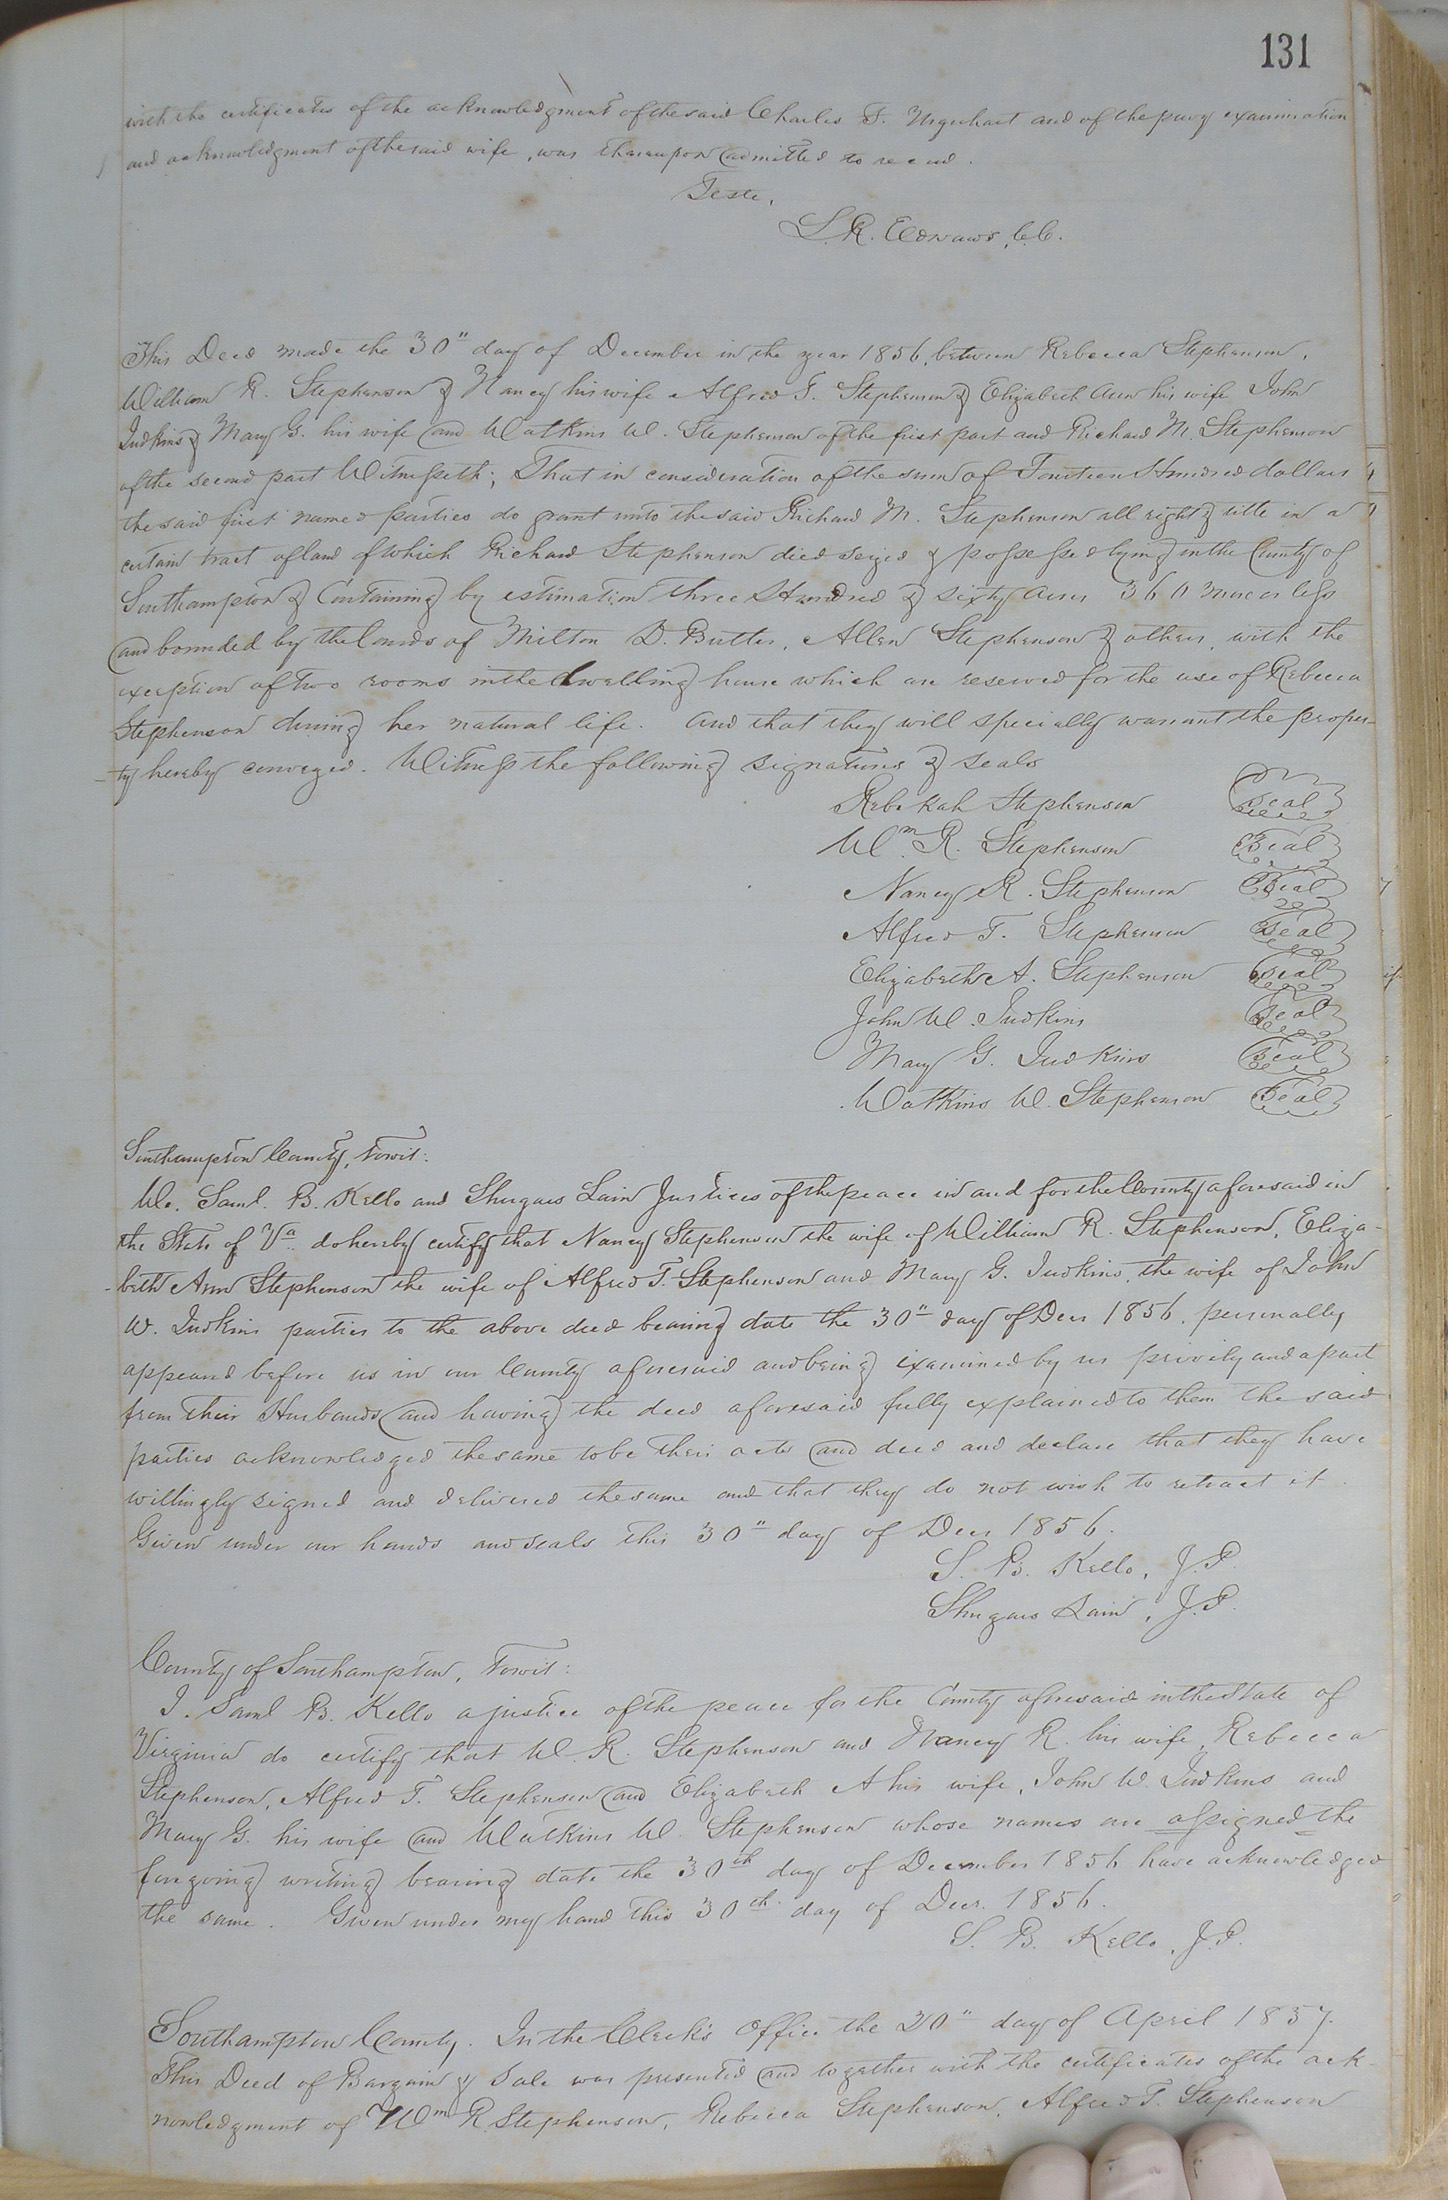 131
with the certificates of the acknowledgment of the said Charles F. Urquhart and of the privy examination
and acknowledgment of the said wife, was thereupon admitted to record.
Teste,
L. R. Edwards, C.C.
This Deed made the 30" day of December in the year 1856, between Rebecca Stephenson,
William R. Stephenson & Nancy his wife Alfred T. Stephenson & Elizabeth Ann his wife John
Judkins & Mary G. his wife and Watkins W. Stephenson of the first part and Richard M. Stephenson
of the second part Witnesseth; That in consideration of the sum of Fourteen Hundred dollars
the said first named parties do grant unto the said Richard M. Stephenson all right & title in a
certain tract of land of which Richard Stephenson died seized & possessed lying in the County of
Southampton & Containing by estimation three Hundred & sixty acres 360 more or less
and bounded by the lands of Milton D. Butts, Allen Stephenson & others, with the
exception of two rooms in the dwelling house which are reserved for the use of Rebecca
Stephenson during her natural life. And that they will specially warrant the proper-
-ty hereby conveyed. Witness the following signatures & seals
Rebekah Stephenson Seal
Wm. R. Stephenson Seal
Nancy R. Stephenson Seal
Alfred T. Stephenson Seal
Elizabeth A. Stephenson Seal
John W. Judkins Seal
Mary G. Judkins Seal
Watkins W. Stephenson Seal
Southampton County, Towit:
We, Saml. B. Kello and Shugars Lain Justices of the peace in and for the County aforesaid in
the State of Va. do hereby certify that Nancy Stephenson the wife of William R. Stephenson, Eliza-
-beth Ann Stephenson the wife of Alfred T. Stephenson and Mary G. Judkins, the wife of John
W. Judkins parties to the above deed bearing date the 30" day of Decr 1856, personally
appeared before us in our County aforesaid and being examined by us privily and apart
from their Husbands and having the deed aforesaid fully explained to them the said
parties acknowledged the same to be their acts and deed and declare that they have
willingly signed and delivered the same and that they do not wish to retract it
Given under our hands and seals this 30" day of Decr 1856.
S. B. Kello, J.P.
Shugars Lain, J.P.
County of Southampton, Towit:
I. Saml B. Kello a justice of the peace for the County aforesaid in the State of
Virginia do certify that W. R. Stephenson and Nancy R. his wife, Rebecca
Stephenson, Alfred T. Stephenson and Elizabeth A his wife, John W. Judkins and
Mary G. his wife and Watkins W. Stephenson whose names are assigned the
foregoing writing bearing date the 30th day of December 1856 have acknowledged
the same. Given under my hand this 30th day of Decr. 1856.
S. B. Kello, J.P.
Southampton County. In the Clerk's Office the 20" day of April 1857.
This Deed of Bargain & Sale was presented and together with the certificates of the ack-
nowledgment of Wm R. Stephenson, Rebecca Stephenson, Alfred T. Stephenson